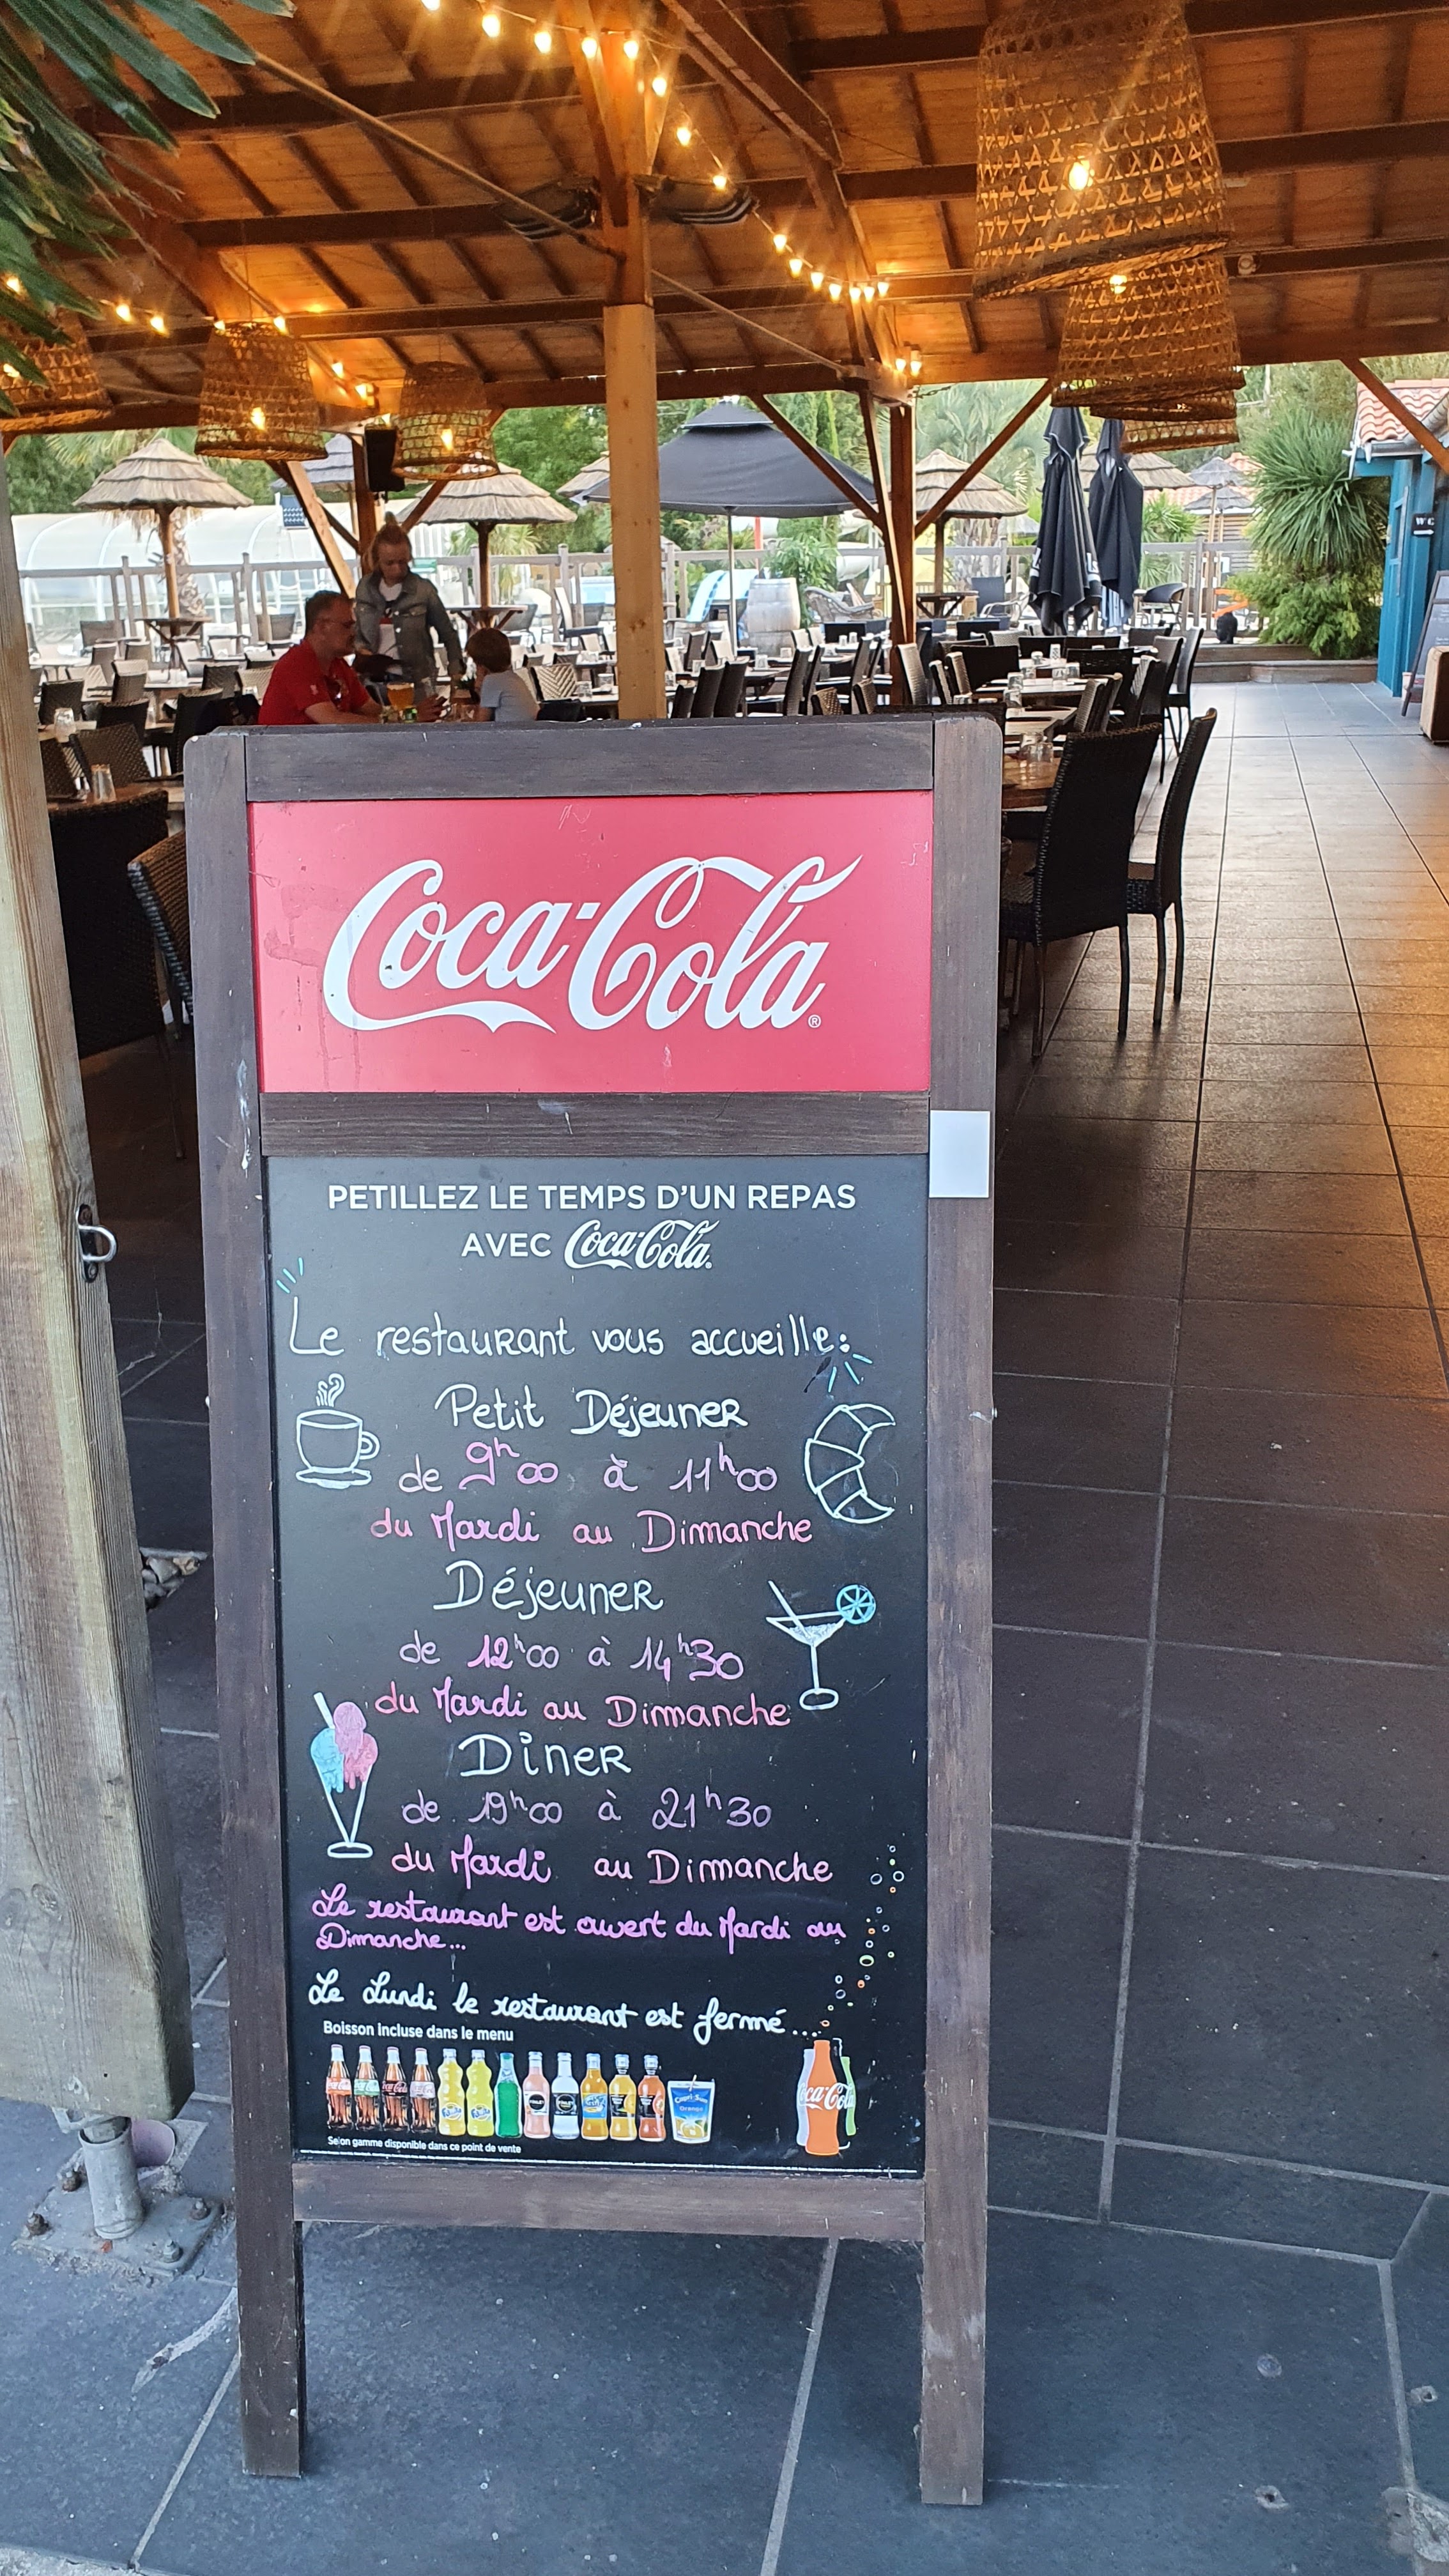 Coca-Cola®
PETILLEZ LE TEMPS D'UN REPAS
AVEC Coca-Cola.
Le restaurant vous accueille:
Petit Déjeuner
de 9h00 à 11h00
du Mardi au Dimanche
Déjeuner
de 12h00 à 14h30
du Mardi au Dimanche
Dîner
de 19h00 à 21h30
du Mardi au Dimanche
Le restaurant est ouvert du Mardi au
Dimanche...
Le Lundi le restaurant est fermé...
Boisson incluse dans le menu
Coca-Cola
Selon gamme disponible dans ce point de vente
WC